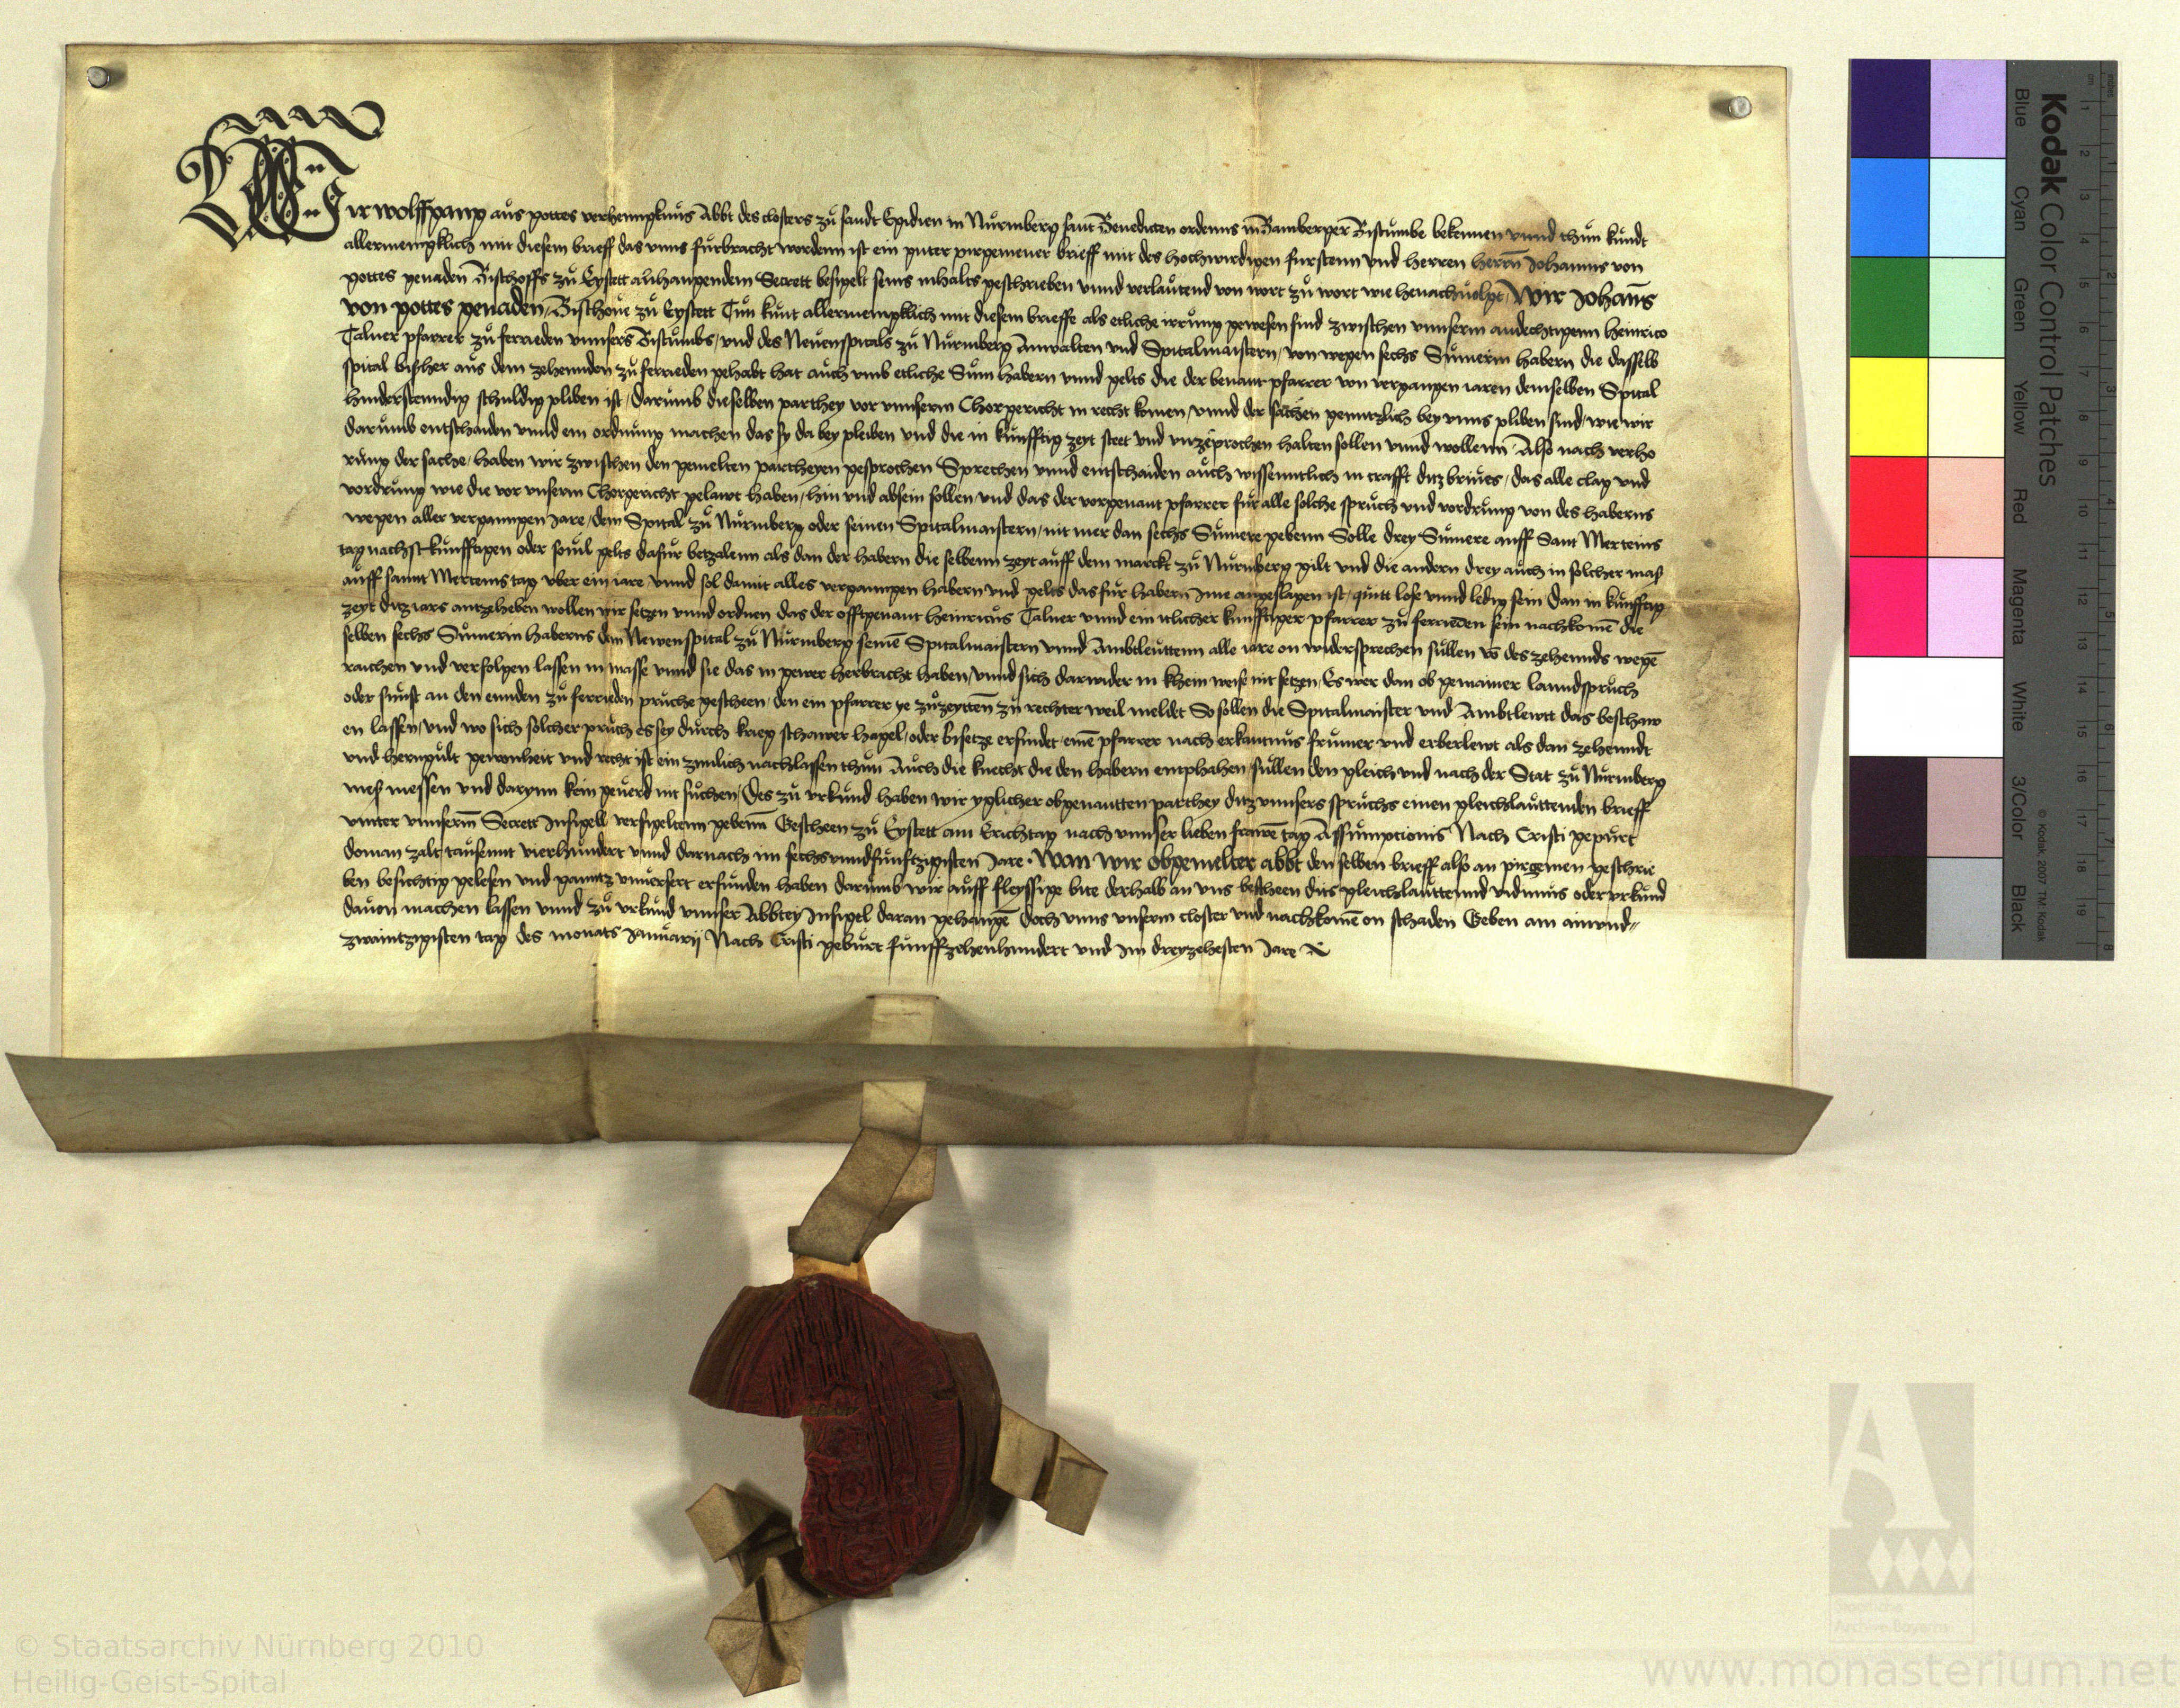 Wir wolffgang aus gottes verhenngknus Abbt des closters zu sandt Egidien in Nurmberg sant Benedicten ordenns in Bamberger Bistumbe bekennen vnnd thun kundt
allermenigklich mit diesem brieff das vnns furbracht wordenn ist ein guter pirgemener brieff mit des hochwirdigen furstenn vnd herren herrn Johanns von
gottes genaden Bischoffs zu Eystett anhangendem Secrett besigelt seins inhalts geschrieben vnnd verlautend von wort zu wort wie hernachuolgt, Wir Johanns
von gottes genaden, Bischoue zu Eystett Tun kunt allermenigklich mit diesem brieffe als etliche irrung gewesen sind zwischen vnnserm andechtigenn Heinrico
Talner pfarrer zu ferrieden vnnsers Bistumbs, vnd des Neuenspitals zu Nurmberg Anwalten vnd Spitalmaistern, von wegen sechs Sumerin habern die dasselb
spital bissher aus dem zehennden zu ferrieden gehabt hat auch vmb etliche Sum habern vnnd gelts die der benant pfarrer von vergangen iaren demselben Spital
hinderstenndig schuldig pliben ist, Darumb dieselben parthey vor vnnserm Chorgericht in recht komen, vnnd der sachen genntzlich bey vnns pliben sind, wie wir
darumb entschaiden vnnd ein ordnung machen das sy da bey pleiben vnd die in kunfftig zeyt stett vnd vnzeprochen halten sollen vnnd wollenn Also nach verho
rung der sache, haben wir zwischen den gemelten partheyen gesprochen Sprechen vnnd entschaiden auch wissenntlich in crafft ditz briues, das alle clag vnd
vordrung wie die vor vnserm Chorgericht gelawt haben, hin vnd absein sollen, vnd das der vorgenant pfarrer fur alle solche spruch vnd vordrung von des haberns
wegen aller verganngen Jare, dem Spital zu Nurmberg oder seinen Spitalmaistern, nit mer dan sechs Sumere gebenn Solle drey Sumere auff Sant Merteins
tag nachst kunfftigen oder souil gelts dafur betzalenn als dan der habern die selbenn zeyt auff dem marckt zu Nurmberg gilt vnd die andern drey auch in solcher mass
auff sannt Merteins tag vber ein iare vnnd sol damit alles verganngen habern vnd gelts das fur habern Ime angeslagen ist, quitt lose vnnd ledig sein, Dan in kunfftig
zeyt ditz iars antzeheben wollen wir setzen vnnd ordnen das der offtgenant Heinricus Talner vnnd ein itlicher kunfftiger pfarrer zu ferrieden sein nachkomē die
selben sechs Sumerin haberns dem Newenspital zu Nurmberg seinē Spitalmaistern vnnd Ambtleuttenn alle iare on widersprechen sullen vō des zehennds wegē
raichen vnd verfolgen lassen in masse vnnd sie das in gewer herbracht haben, vnnd sich darwider in khein weise nit setzen, Es wer dan ob gemainer lanndspruch
oder sunst an den ennden zu ferrieden pruche gescheen, den ein pfarrer ye zu zeytten zu rechter weil meldet So sollen die Spitalmaister vnd Ambtlewtt das beschaw
en lassen, vnd wo sich solcher pruch es sey durch krieg schawer hagel, oder bisetze erfindet, einē pfarrer nach erkantnus frumer vnd erberlewt als dan zehenndt
vnd herngult gewonheit vnd recht ist ein zimlich nachlassen thun Auch die knecht die den habern emphahen, sullen den gleich vnd nach der Stat zu Nurmberg
mess messen vnd darynn kein geuerd nit suchen, Des zu vrkund haben wir yglicher obgenantten parthey ditz vnnsers spruchs einen gleichlauttenden brieff
vnnter vnnserm Secrett Insigell versigeltenn gebenn Gescheen zu Eystett am Erichtag nach vnnser lieben frawē tag Assumptionis Nach Cristi gepurt
doman zalt, tausennt vierhundert vnnd darnach im sechsvundfunfftzigisten Jare. Wan wir obgemelter abbt den selben brieff also an pirgemen geschrie
ben besichtig gelesen vnd ganntz vnuersert erfunden haben darumb wir auff fleyssige bite derhalb an vns bescheen dits gleichlauttennd vidimus oder vrkund
dauon machen lassen vnnd zu vrkund vnnser Abbtey Insigel daran gehangē Doch vnns vnserm closter vnd nachkomē on schaden Geben am ainvnd=
zwaintzigisten tag des monats Januarij Nach Cristi geburt funffzehenhundert vnd Im dreyzehesten Jare
Kodak Color Control Patches
Blue Cyan Green Yellow Red Magenta White 3/Color Black
© Kodak, 2007 TM: Kodak
© Staatsarchiv Nürnberg 2010
Heilig-Geist-Spital
www.monasterium.net